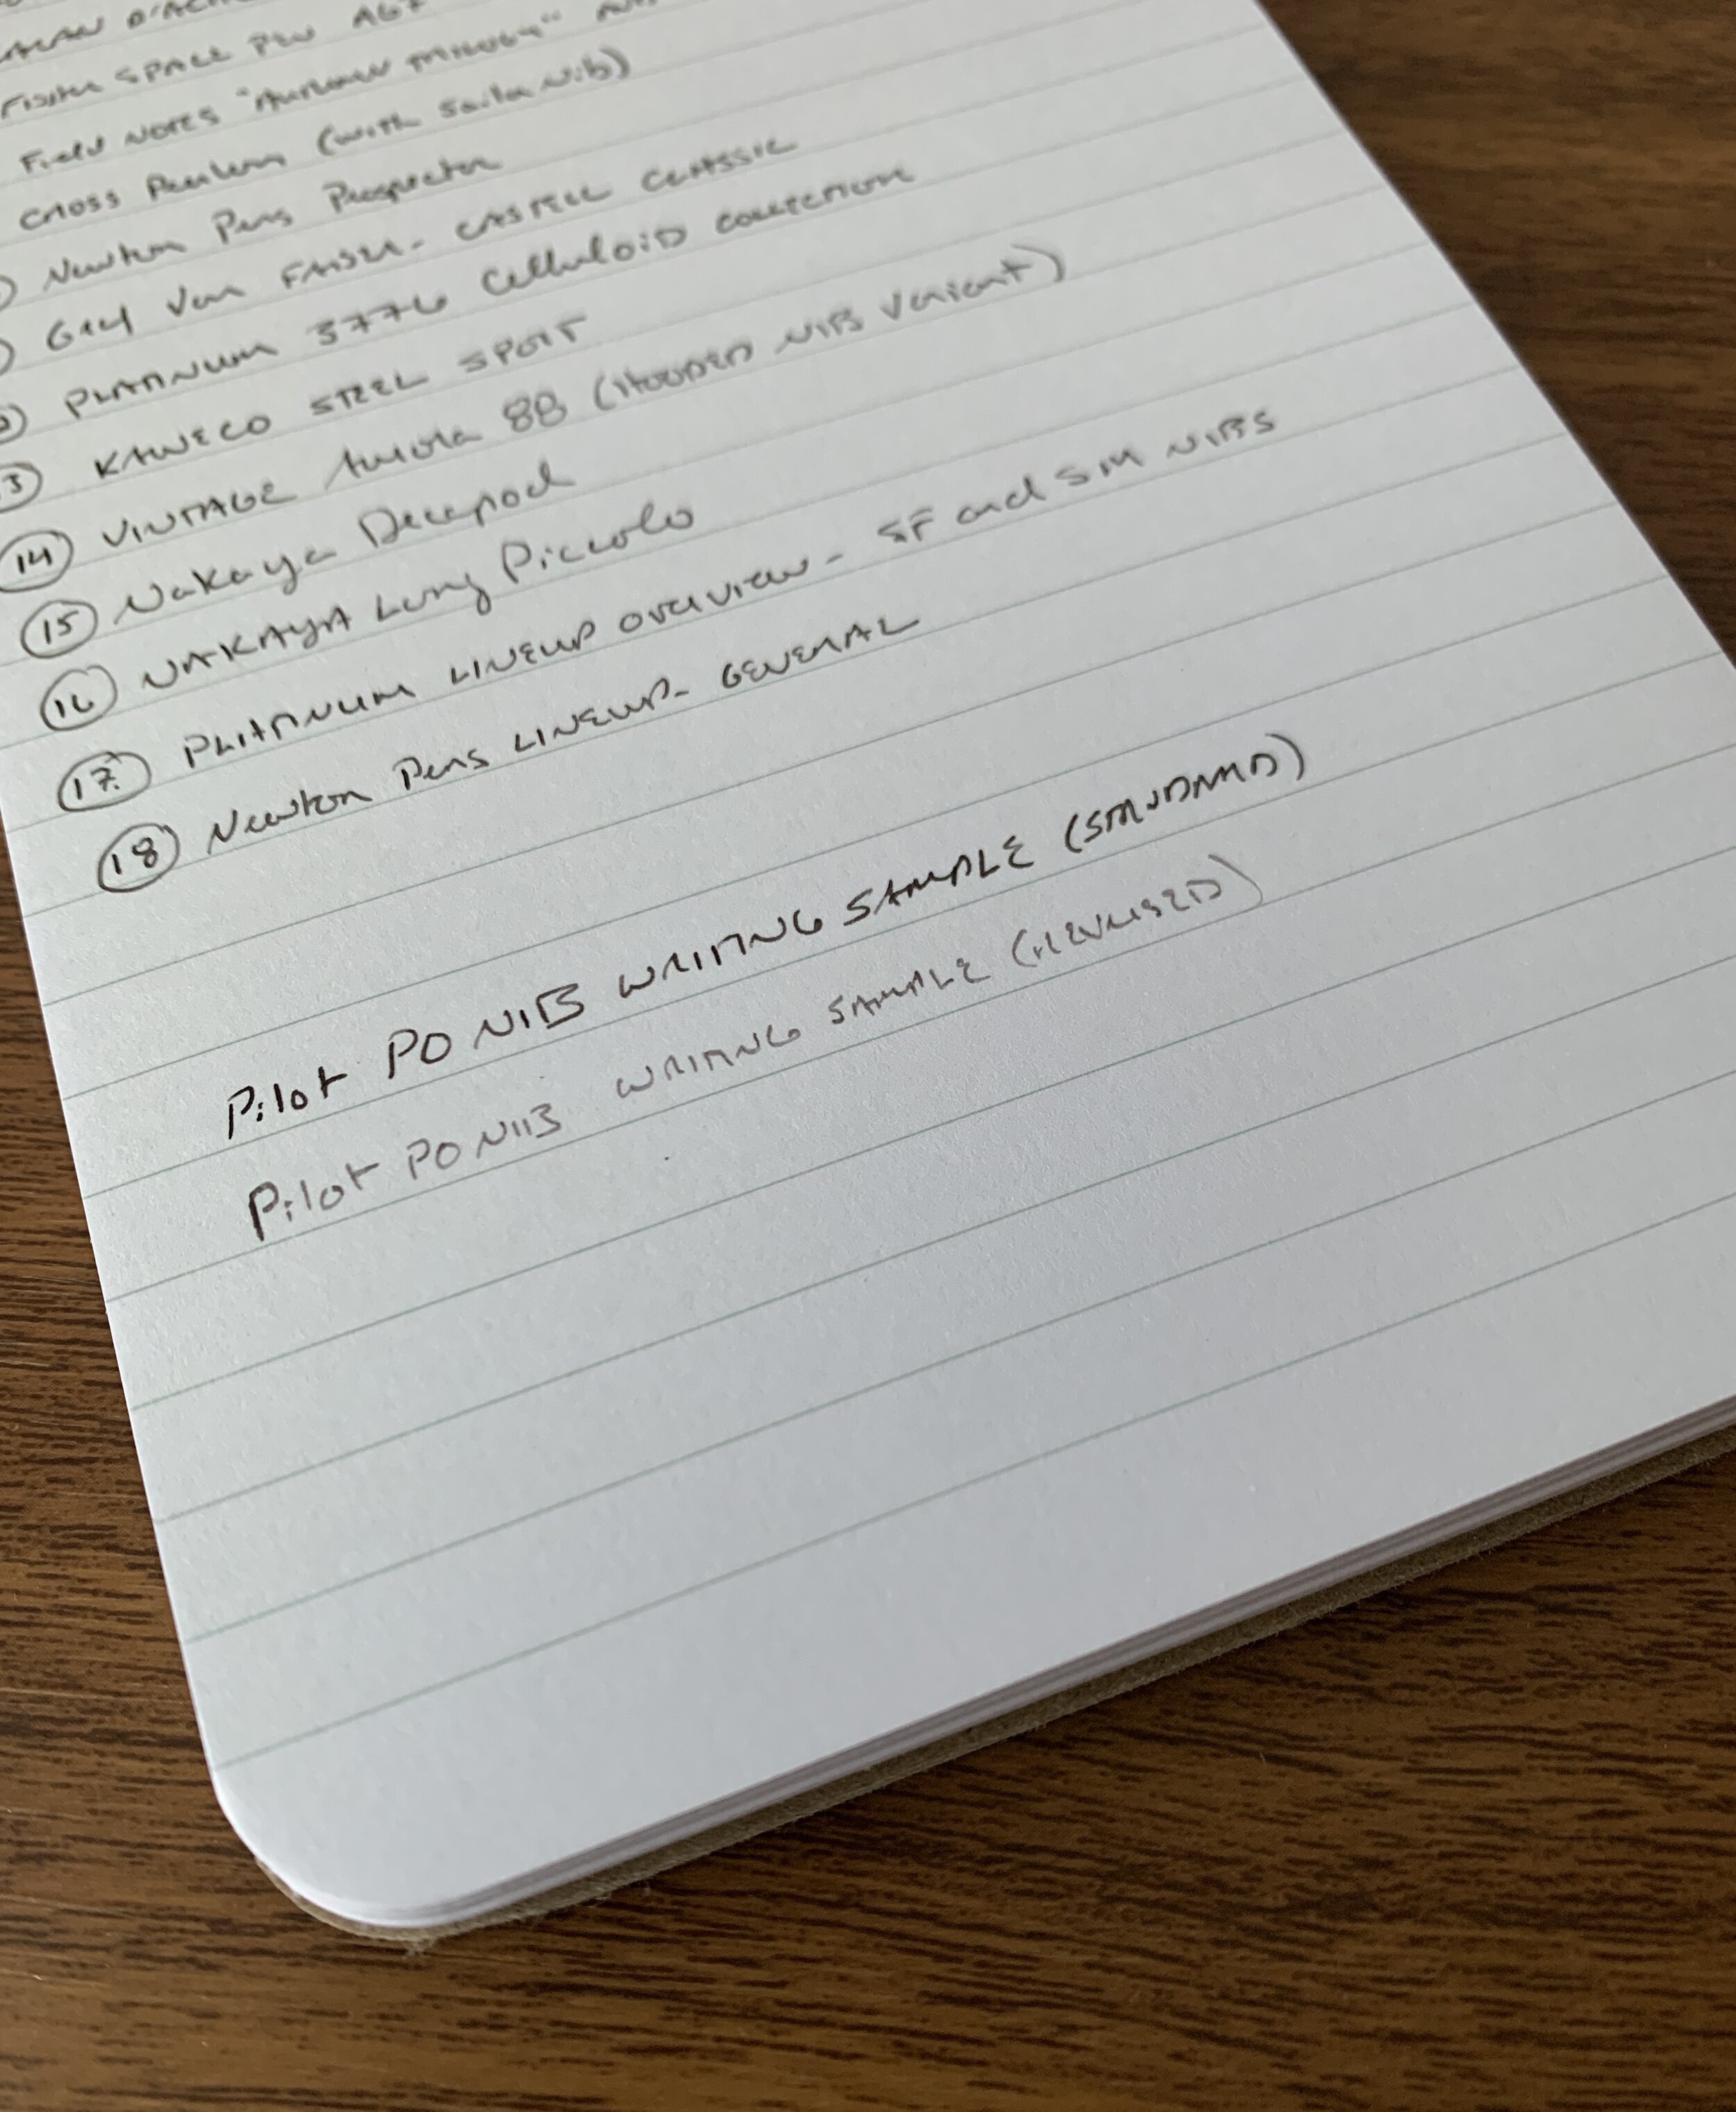 D'ACHE
FISHER SPACE PEN AG7
Field NOTES "Autumn Trilogy"
CROSS Peerless (with Sailor Nib)
Newton Pens Prospector
Graf Von FABER-CASTELL CLASSIC
PLATINUM 3776 Celluloid COLLECTION
13 KAWECO STEEL SPORT
14 VINTAGE Aurora 88 (HOODED NIB Variant)
15 Nakaya Decapod
16 NAKAYA Long Piccolo
17. PLATINUM LINEUP OVERVIEW - SF and SM NIBS
18 Newton Pens LINEUP - GENERAL
Pilot PO NIB WRITING SAMPLE (STANDARD)
Pilot PO NIB WRITING SAMPLE (REVERSED)